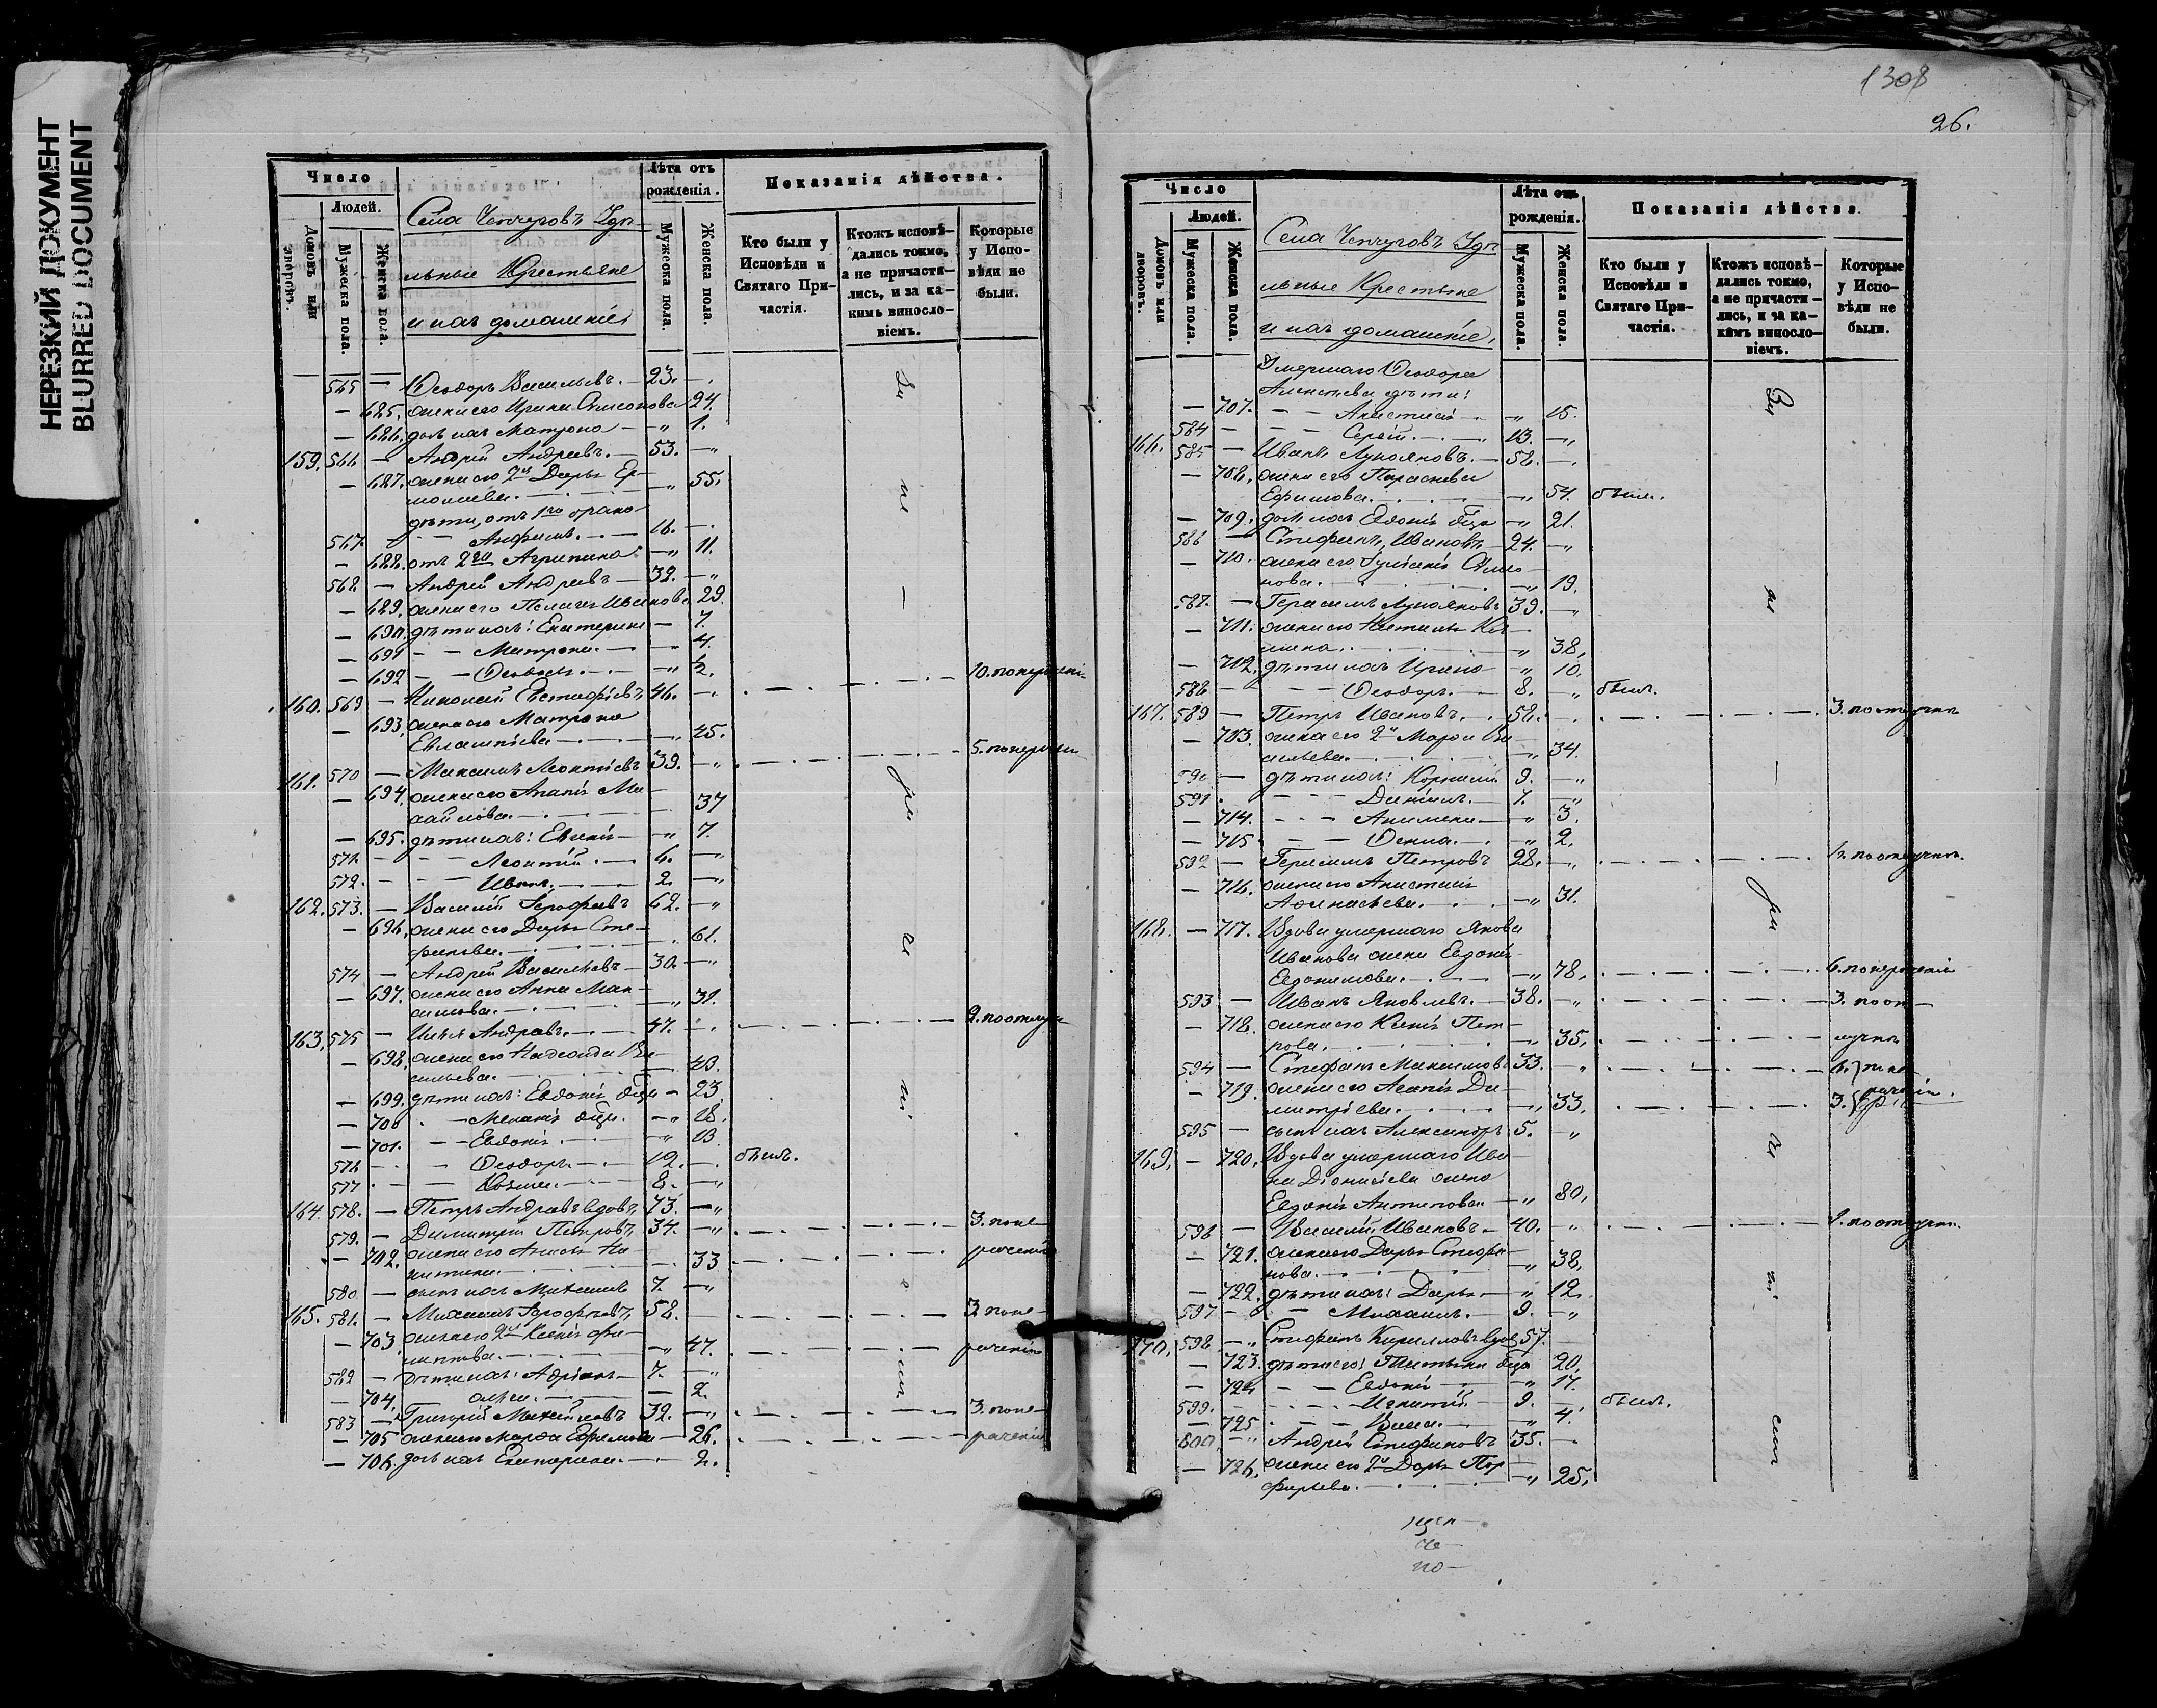 НЕРЕЗКИЙ ДОКУМЕНТ
BLURRED DOCUMENT
Число
Людей.
Домовъ или дворовъ.
Мужеска пола.
Женска пола.
Села Чепчуговъ Удѣ-
льные Крестьяне
и ихъ домашніе
Лѣта отъ рожденія.
Мужеска пола.
Женска пола.
Показанія дѣйства.
Кто были у Исповѣди и Святаго При-частія.
Ктожъ исповѣ-дались токмо, а не причасти-лись, и за ка-кимъ виносло-віемъ.
Которые у Испо-вѣди не были.
565 — Ѳеодоръ Васильевъ. — 23. —
— 685. жена его Ирина 24.
— 686. дочь ихъ Матрона — „ 1.
159. 566 — Андрей Андреевъ. — 53. — „
— 687. жена его 2я Дарья Ер-
молаева. — „ 55.
дѣти, отъ 1го брака
567. — Анфимъ. — 16. —
— 688. отъ 2го Агрипина — „ 11.
568 — Андрей Андреевъ — 32. — „
— 689. жена его Пелагея Иванова 29.
— 690. дѣти ихъ: Екатерина — 7.
— 691 — Матрона. — 4.
— 692 — Ѳеодосья. — „ ½.
160. 569 — Николай Евстафіевъ 46. — 10. по нераченію
— 693. жена его Матрона
Евлампіева — „ 45.
161. 570 — Максимъ Леонтіевъ 39. — „ 5. по нераченію
— 694. жена его Анапія Ми-
хайлова. — 37
— 695. дѣти ихъ: Евгенія — „ 7.
571. — Леонтій. — 4. — „
572. — Иванъ. — 2. — „
162. 573. — Василій Ерофеевъ 62. — „
— 696. жена его Дарья Сте-
фанова. — 61.
574 — Андрей Васильевъ — 30. — „
— 697. жена его Анна Мак-
симова. — „ 31.
163. 575 — Илья Андреевъ. — 47. — 2. по отлучк
— 698. жена его Надежда Ва-
сильева. — 43.
— 699. дѣти ихъ: Евдокія дѣца — 23
— 700 — Меланія дѣца. — „ 18.
— 701. — Евдокія. — „ 13.
576 — Ѳеодоръ. — 12. — были.
577 — Козьма. — 8. — „
164. 578. — Петръ Андреевъ вдовъ, 73. — „
579. — Димитрій Петровъ, 34. — „ 3. по не-
— 702. жена его Анисья Ни-
китина. — 33 раченію
580 — сынъ ихъ Михаилъ 7. — „
165. 581. — Михаилъ Ерофеевъ, 58. — 3. по не-
— 703. жена его 2я Ксенія Фи-
липпова. — „ 47. раченію
582 — Дѣти ихъ: Адріанъ — 7. — „
— 704. — 2.
583 — Григорій Михайловъ 32. — „ 3. по не-
— 705 жена его Марфа Ефремова — 26. раченію
— 706. дочь ихъ Екатерина. — 2.
1308
26.
Число
Людей.
Домовъ или дворовъ.
Мужеска пола.
Женска пола.
Села Чепчуговъ Удѣ-
льные Крестьяне
и ихъ домашніе,
Лѣта отъ рожденія.
Мужеска пола.
Женска пола.
Показанія дѣйства.
Кто были у Исповѣди и Святаго При-частія.
Ктожъ исповѣ-дались токмо, а не причасти-лись, и за ка-кимъ виносло-віемъ.
Которые у Испо-вѣди не были.
Умершаго Ѳеодора
Алексѣева дѣти:
— 707. — Анастасія — „ 15.
584 — Сергій. — 13. — „
166. 585 — Иванъ Лукояновъ. — 58. —
— 708. жена его Параскева
Ефимова. — „ 54. были.
— 709. дочь ихъ Евдокія дѣца — „ 21.
586 — Стефанъ Ивановъ — 24. — „
— 710. жена его Іуліанія
— „ 19.
587. — Герасимъ Лукояновъ 39. — „
— 711. жена его Наталья
— „ 38.
— 712. дѣти ихъ Ирина „ 10.
588 — Ѳеодоръ. — 8. „ были.
167. 589 — Петръ Ивановъ. — 58. — 3. по отлучкѣ
— 713. жена его 2я Марфа Ва-
сильева. — „ 34.
590 — дѣти ихъ: Корнилій 9. — „
591. — Даніилъ. — 7. — „
— 714. — Акилина — „ 3.
— 715. — Ѳекла. — „ 2.
592 — Герасимъ Петровъ 28. — „ по отлучкѣ.
— 716. жена его Анастасія
Аѳанасьева. — „ 31.
168. — 717. Вдова умершаго Якова
Иванова жена Евдокія
Евдокимова. — „ 78. 6. по нераченію
593 — Иванъ Яковлевъ. — 38. — „ 3. по от-
— 718. жена его Ксенія Пет-
рова. — „ 35. лучкѣ
594 — Стефанъ Максимовъ 33. — „ по не-
— 719. жена его Агапія Ди-
митріева. — „ 33. 3. раченію.
595 — сынъ ихъ Александръ 5. — „
169. — 720. Вдова умершаго Ива-
на Діонисіева жена
Евдокія Антипова — „ 80.
596 — Василій Ивановъ — 40. — „ 1. по отлучкѣ.
— 721. жена его Дарья Стефа-
нова. — „ 38.
— 722. дѣти ихъ: Дарья — „ 12.
597 — Михаилъ. — 9. — „
170. 598 — „ Стефанъ Кирилловъ вдов 57.
— 723. дѣти его: Татьяна дѣца 20.
— 724 — Евдокія — „ 17.
599. — Игнатій — 9. — были.
— 725. — Васса. — „ 4.
600 — „ Андрей Стефановъ 35. —
— 726. жена его 2я Дарья Пор-
фирьева. — „ 25.